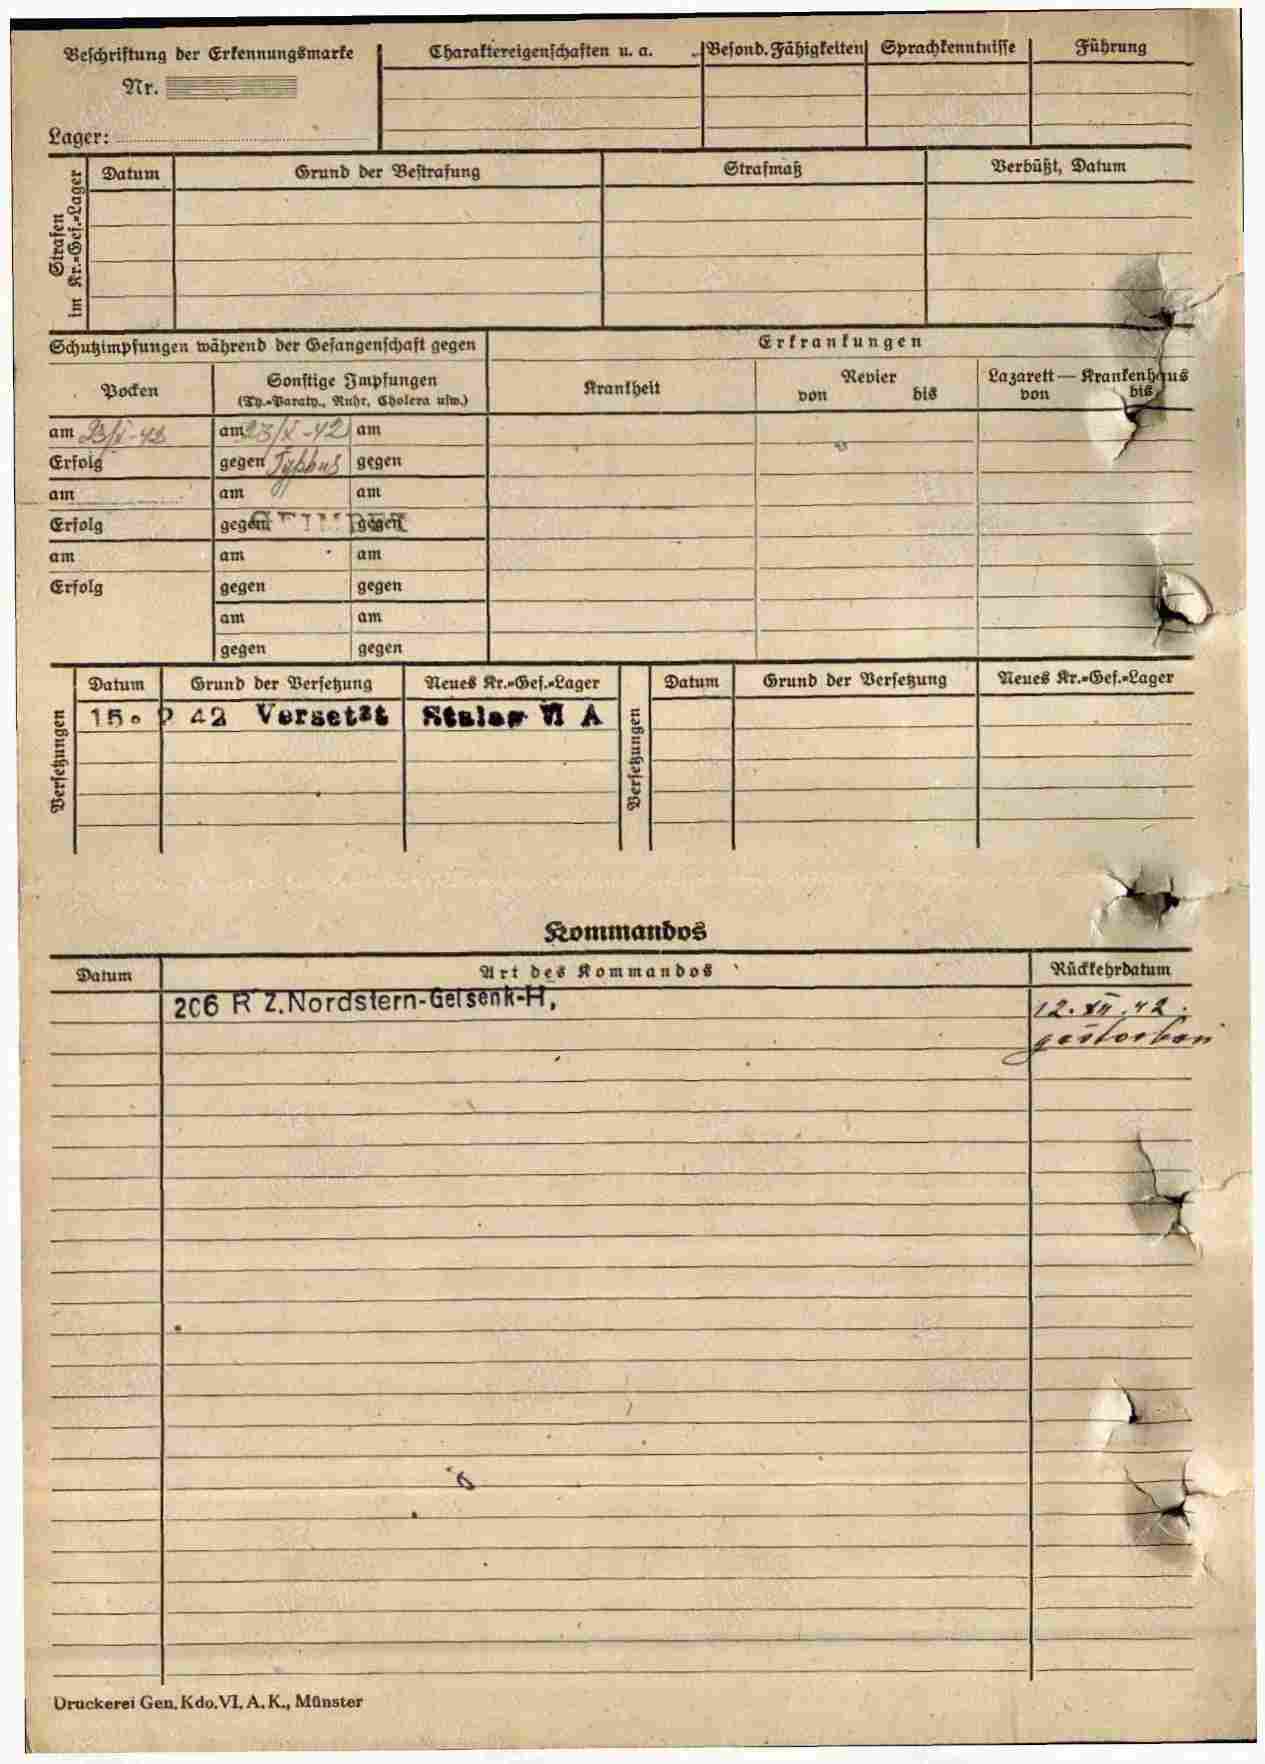 Beschriftung der Erkennungsmarke
Nr.
Lager:
Charaktereigenschaften u. a.
Besond. Fähigkeiten
Sprachkenntnisse
Führung
Strafen
im Kr.-Gef.-Lager
Datum
Grund der Bestrafung
Strafmaß
Verbüßt, Datum
Schutzimpfungen während der Gefangenschaft gegen
Erkrankungen
Pocken
Sonstige Impfungen
(Ty.-Paraty., Ruhr, Cholera usw.)
Krankheit
Revier
von bis
Lazarett — Krankenhaus
von bis
am 23/X-42 am 23/X-42 am
Erfolg gegen Typhus gegen
am am am
Erfolg gegen gegen
am am am
Erfolg gegen gegen
am am
gegen gegen
Versetzungen
Datum Grund der Versetzung Neues Kr.-Gef.-Lager
15. 42 Versetzt Stalag VI A
Versetzungen
Datum Grund der Versetzung Neues Kr.-Gef.-Lager
Kommandos
Datum Art des Kommandos Rückkehrdatum
206 R Z.Nordstern-Gelsenk-H. 12.XII.42.
gestorben
Druckerei Gen. Kdo. VI. A. K., Münster